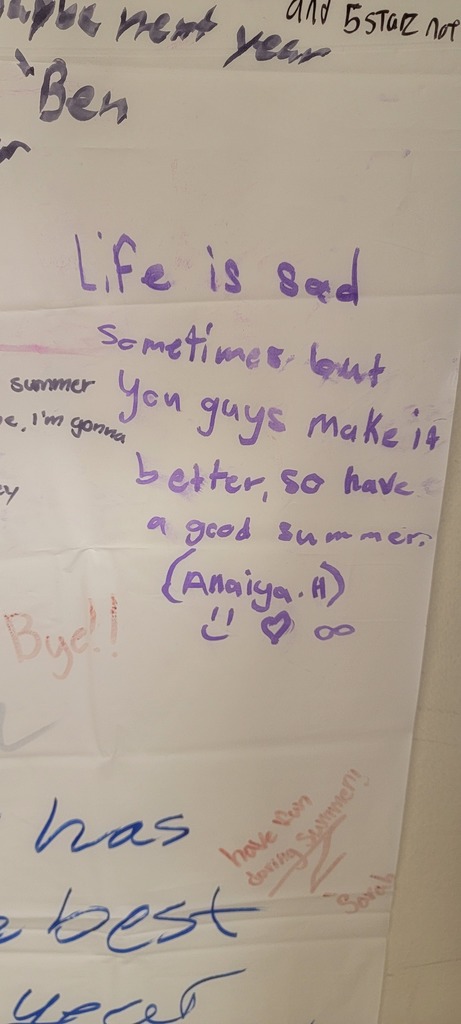 and 5 STAR not
maybe next year
Ben
Life is sad
sometimes but
you guys make it
better, so have
a good summer.
(Anaiya.H)
summer
I'm gonna
Bye!!
has
best
have fun
during summer!!
Sarah